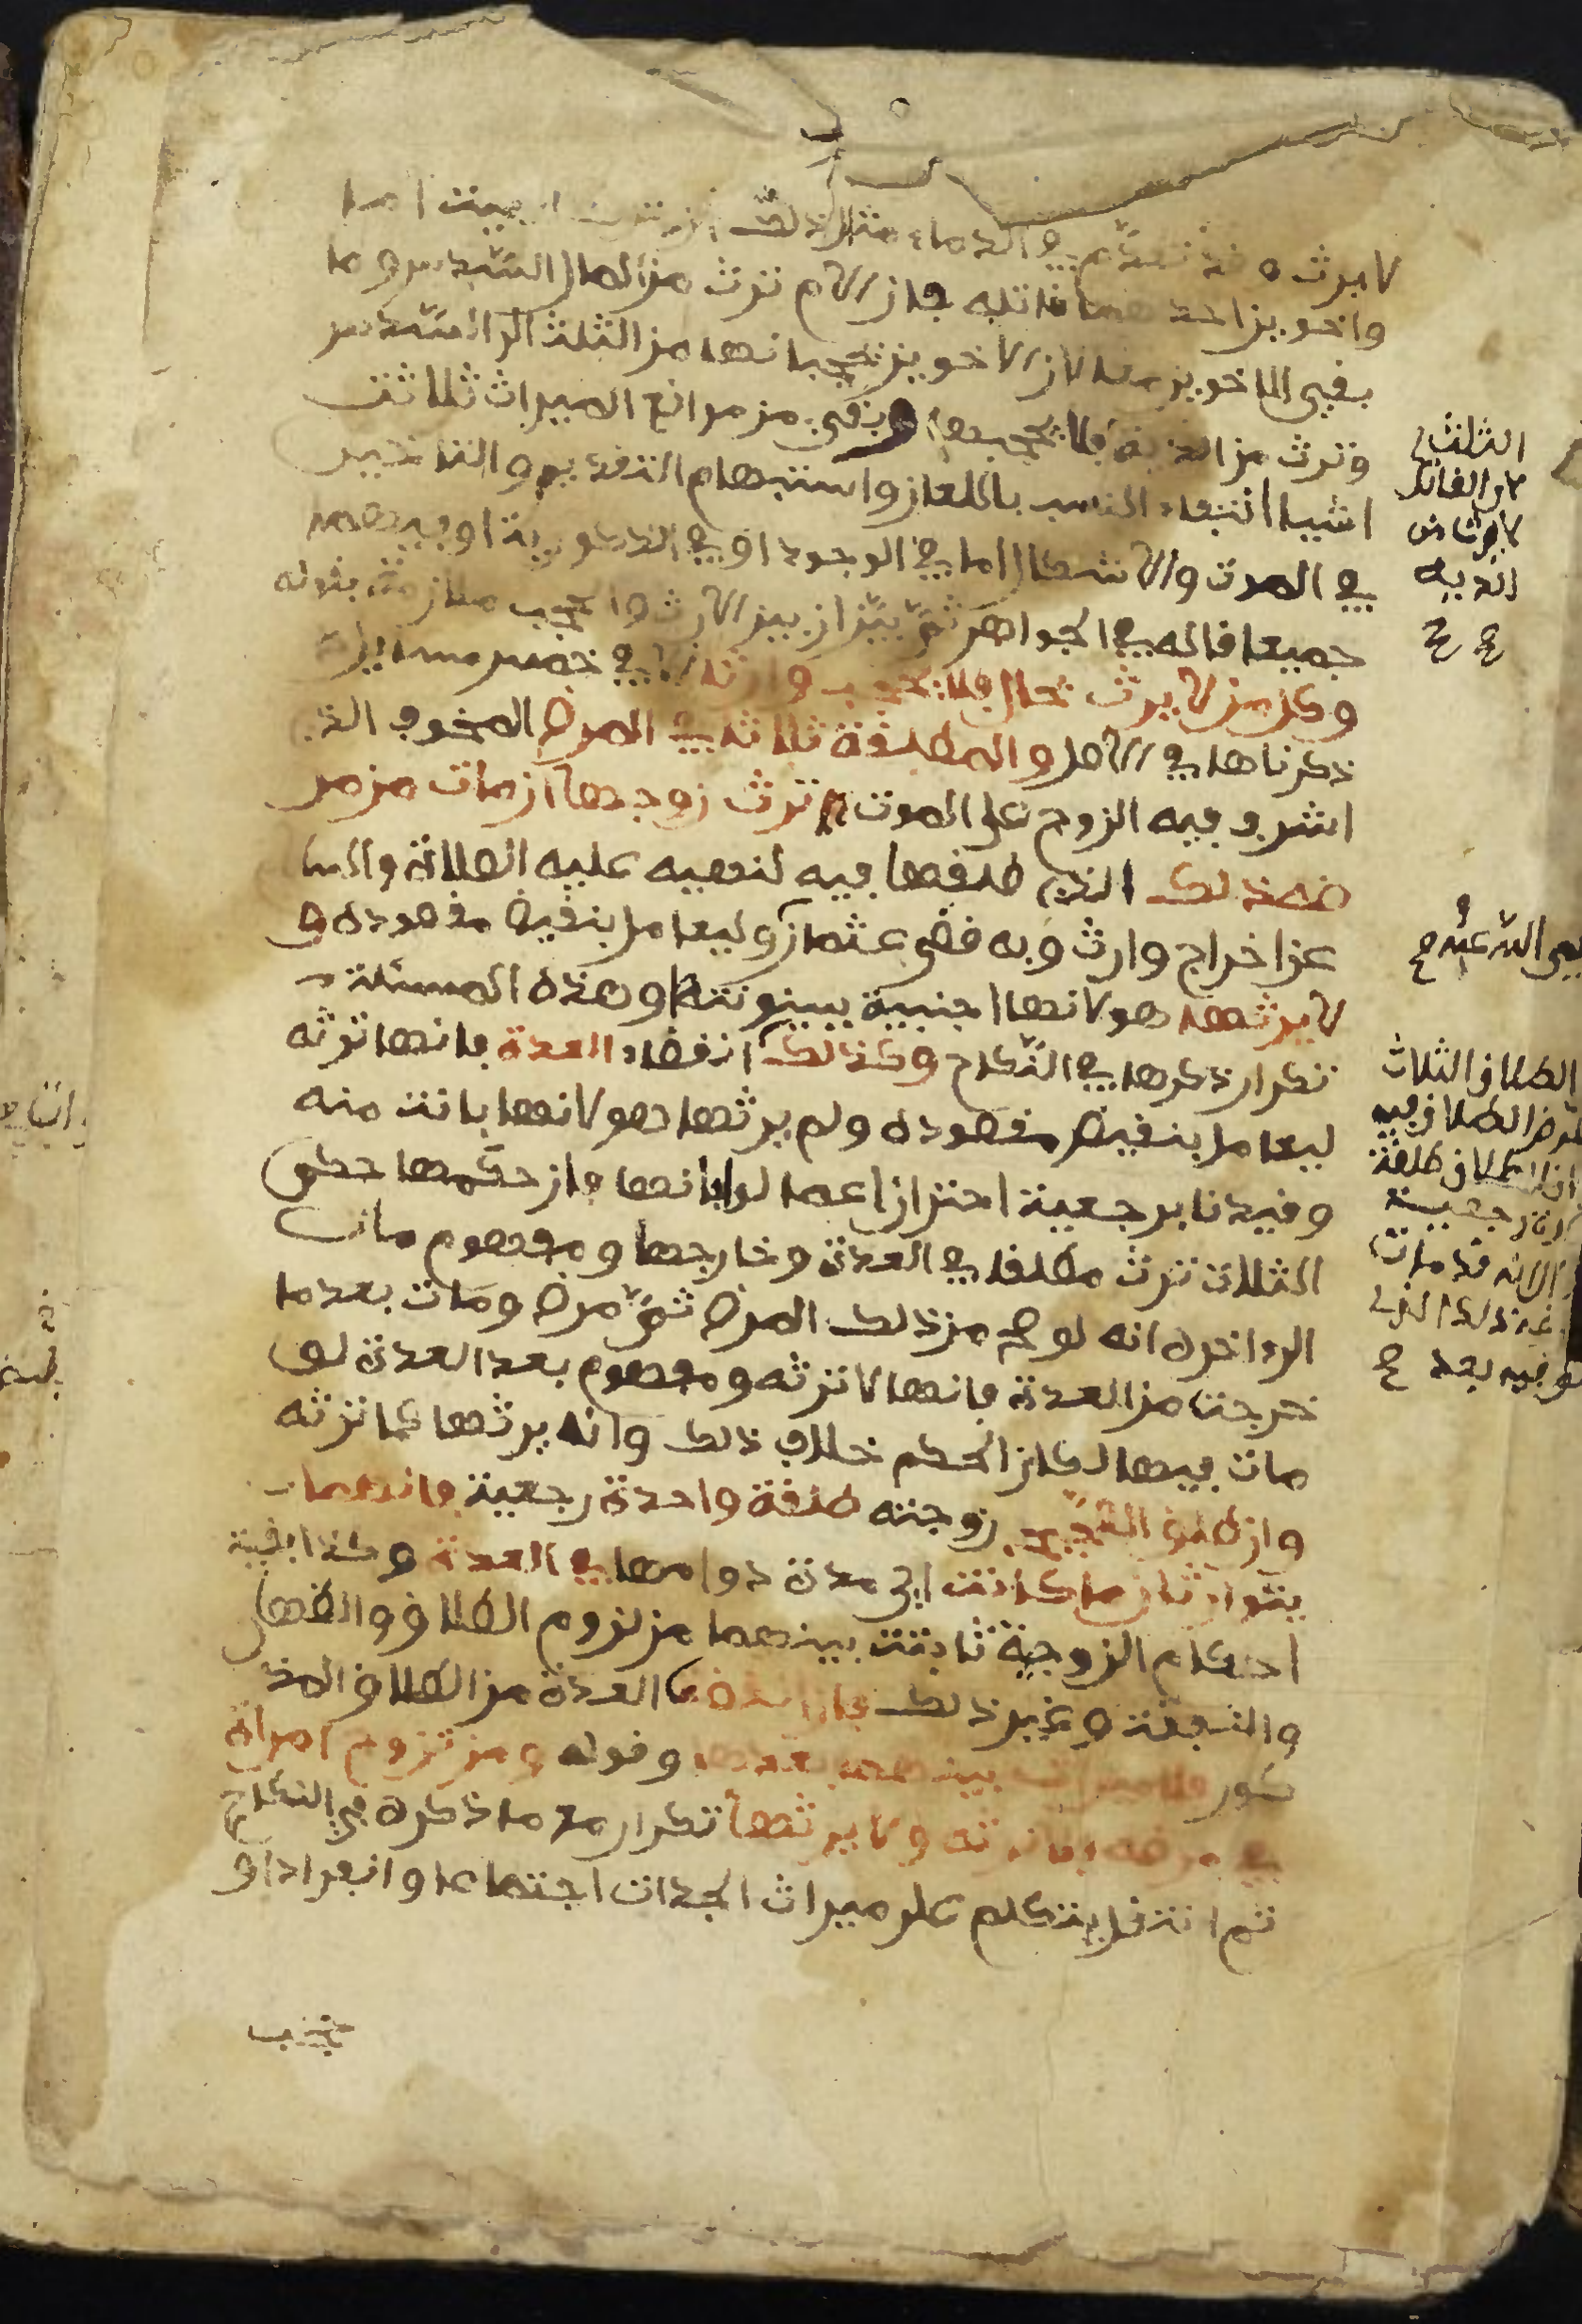 لا يرث وقد تقدم في الدماء مثال ذلك ان تترك ميت اما
واخوين احدهما قاتله فان الام ترث من المال السدس وما
بقي للاخوين لان الاخوين يحجبانها من الثلث الى السدس
وترث من الدية فلا يحجبها وبقي من موانع الميراث ثلاثة
اشيا انتفاء النسب باللعان واستبهام التقديم والتاخير
في الموت والاشكال اما في الوجود او في الذكورية او فيهما
جميعا قاله في الجواهر ثم بين ان بين الارث والحجب ملازمة بقوله
وكل من لا يرث بحال فلا يحجب وارثا الا في خمس مسائل
ذكرناها في الاصل والمطلقة ثلاثا في المرض المخوف الذي
اشرف فيه الزوج على الموت ترث زوجها ان مات من مر
ضه ذلك الذي طلقها فيه لنهيه عليه الصلاة والسلام
عن اخراج وارث وبه قضى عثمان وليعامل بنقيض مقصوده و
لا يرثها هو لانها اجنبية ببينونتها وهذه المسئلة
تكرار ذكرها في النكاح وكذلك انقضاء العدة فانها ترثه
ليعامل بنقيض مقصوده ولم يرثها هو لانها بانت منه
وقيدنا برجعية احترازا عما لو ابانها فان حكمها حكم
الثلاث ترث مطلقا في العدة وخارجها ومفهوم مات
الى اخره انه لو صح من ذلك المرض ثم مرض ومات بعد ما
خرجت من العدة فانها لا ترثه ومفهوم بعد العدة لو
مات فيها لكان الحكم خلاف ذلك وانه يرثها كما ترثه
وان طلق الصحيح زوجته طلقة واحدة رجعية فانهما
يتوارثان ما كانت اي مدة دوامها في العدة وكذا بقية
احكام الزوجية ثابتة بينهما من لزوم الطلاق والظهار
والنفقة وغير ذلك فان انقضت العدة من الطلاق المذ
كور فلا ميراث بينهما بعدها وقوله ومن تزوج امراة
في مرضه لم ترثه ولا يرثها تكرار مع ما ذكره في النكاح
ثم انتقل يتكلم على ميراث الجدات اجتماعا وانفرادا
الثلث
لان القاتل
لا يرث من
الدية
صح
رضي الله عنه صح
الطلاق الثلاث
الطلاق فيه
ان الطلاق طلقة
رجعية
الا انه قد مات
ذلك الذي
فيه بعد صح